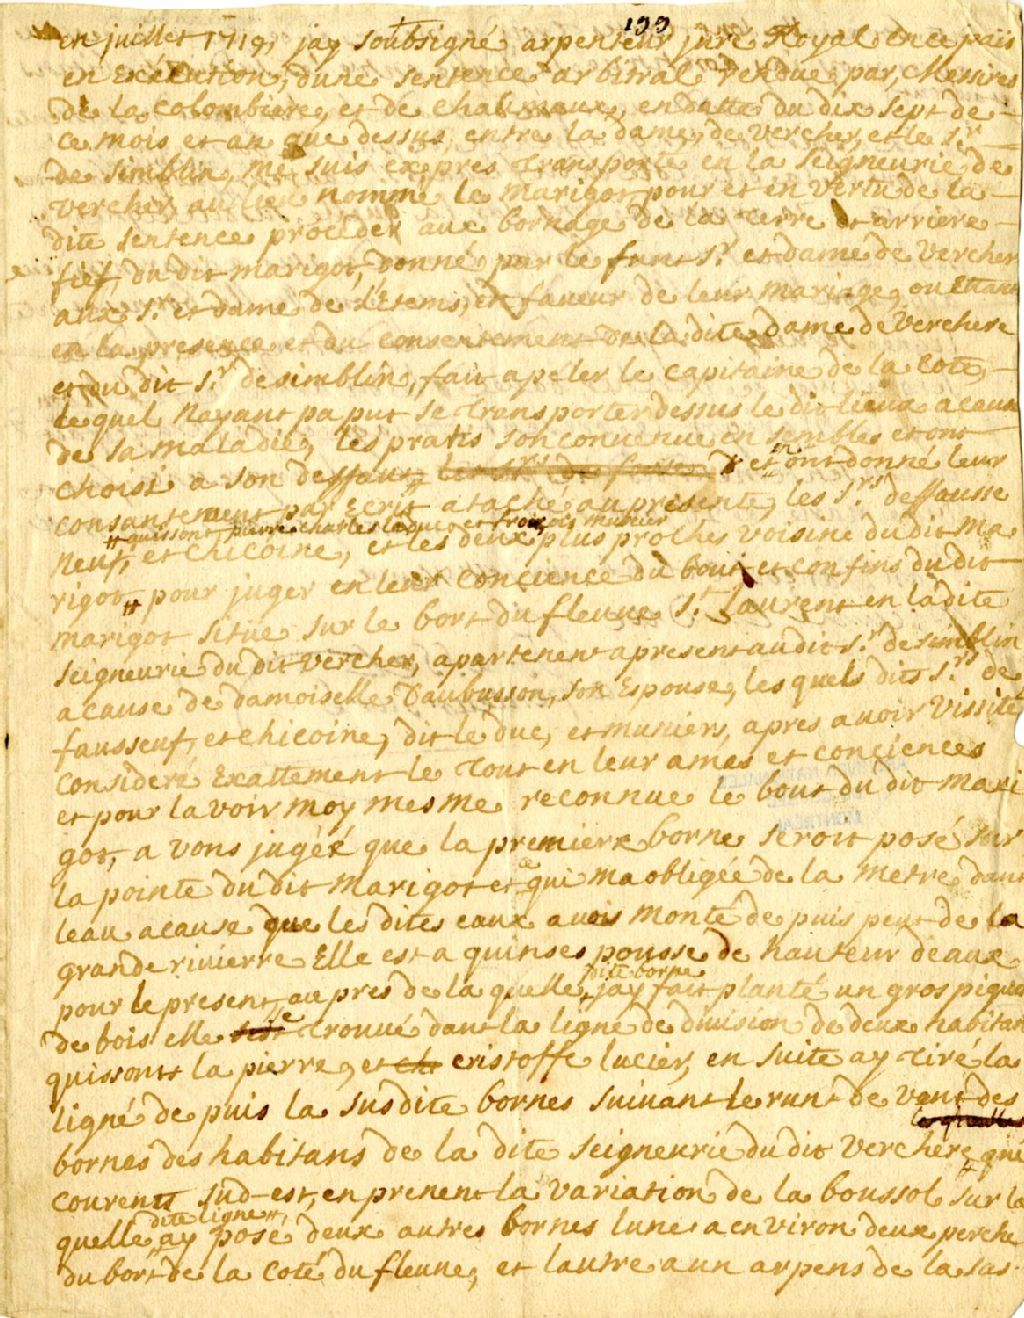 199
en juillet 1719, jay soubsigné arpenteur juré Royal en ce païs
en Exécution, dune sentence arbitral rendue, par, Messires
de la Colombiere, et de Chalmaux, en datte du dix sept de
ce mois et an que dessus, entre la dame, de vercher, et le Sr.
de simblin, me suis expres transporte en la seigneurie, de
vercher, au lieu nommé le marigot, pour et en vertu de la
dite sentence proceder aux bornage de la terre et arriere
fief, du dit marigot, donné, par le funt Sr. et dame de vercher
aux Sr. et dame de en faveur de leur mariage, ou Ettant
en la presence et du consentement de la dite dame de verchere
et du dit Sr. de simblin, fait apeler le capitaine de la cote,
lequel Nayant pa put se transporter dessus le dit lieux a cause
de sa maladie, les partis son convenue en semble et ont
choisi a son deffaut, et ont donné leur
consantement par Ecrit ataché au presente, les Srs. deffausse
qui sont pierre charles laque et françois munier
neuf, et chicoine, et les deux plus proches voisins du dit ma
rigot pour juger en leur concience du bout et confins du dit
marigot situé sur le bort du fleuve St. Laurent en la dite
seigneurie du dit vercher, apartenent a present au dit Sr. de simblin
a cause de damoiselle Daubusson, son Espouse, les quels dits Srs. de
fausseuf, et chicoine, dit le duc, et muniers, apres avoir vissité
consideré Exattement le tout en leur ames et conciences
et pour lavoir moy mesme reconnue le bout du dit mari
got, a vons jugéé que la premiere borne seroit posé sur
la pointe du dit marigot et ce qui ma obligée de la metre dans
leau a cause que les dites eaux avois monté de puis peut de la
grande rivierre Elle est a quinses pousse de hauteur deaux
pour le present au pres de la quelle dite borne jay fait planté un gros piquet
de bois elle se trouvé dans la ligne de division de deux habitan
quissont la pierre, et cristoffe lucier, en suite ay tiré la
ligné de puis la susdite bornes suivant le runt de vent des
lesquelles
bornes des habitans de la dite seigneurié du dit verchere que
courent sud-est, en prenent la variation de la boussol sur la
quelle dite ligne ay posé deux autres bornes lune a environ deux perche
du bort de la coté du fleuve, et lautre a un arpens de la sus-